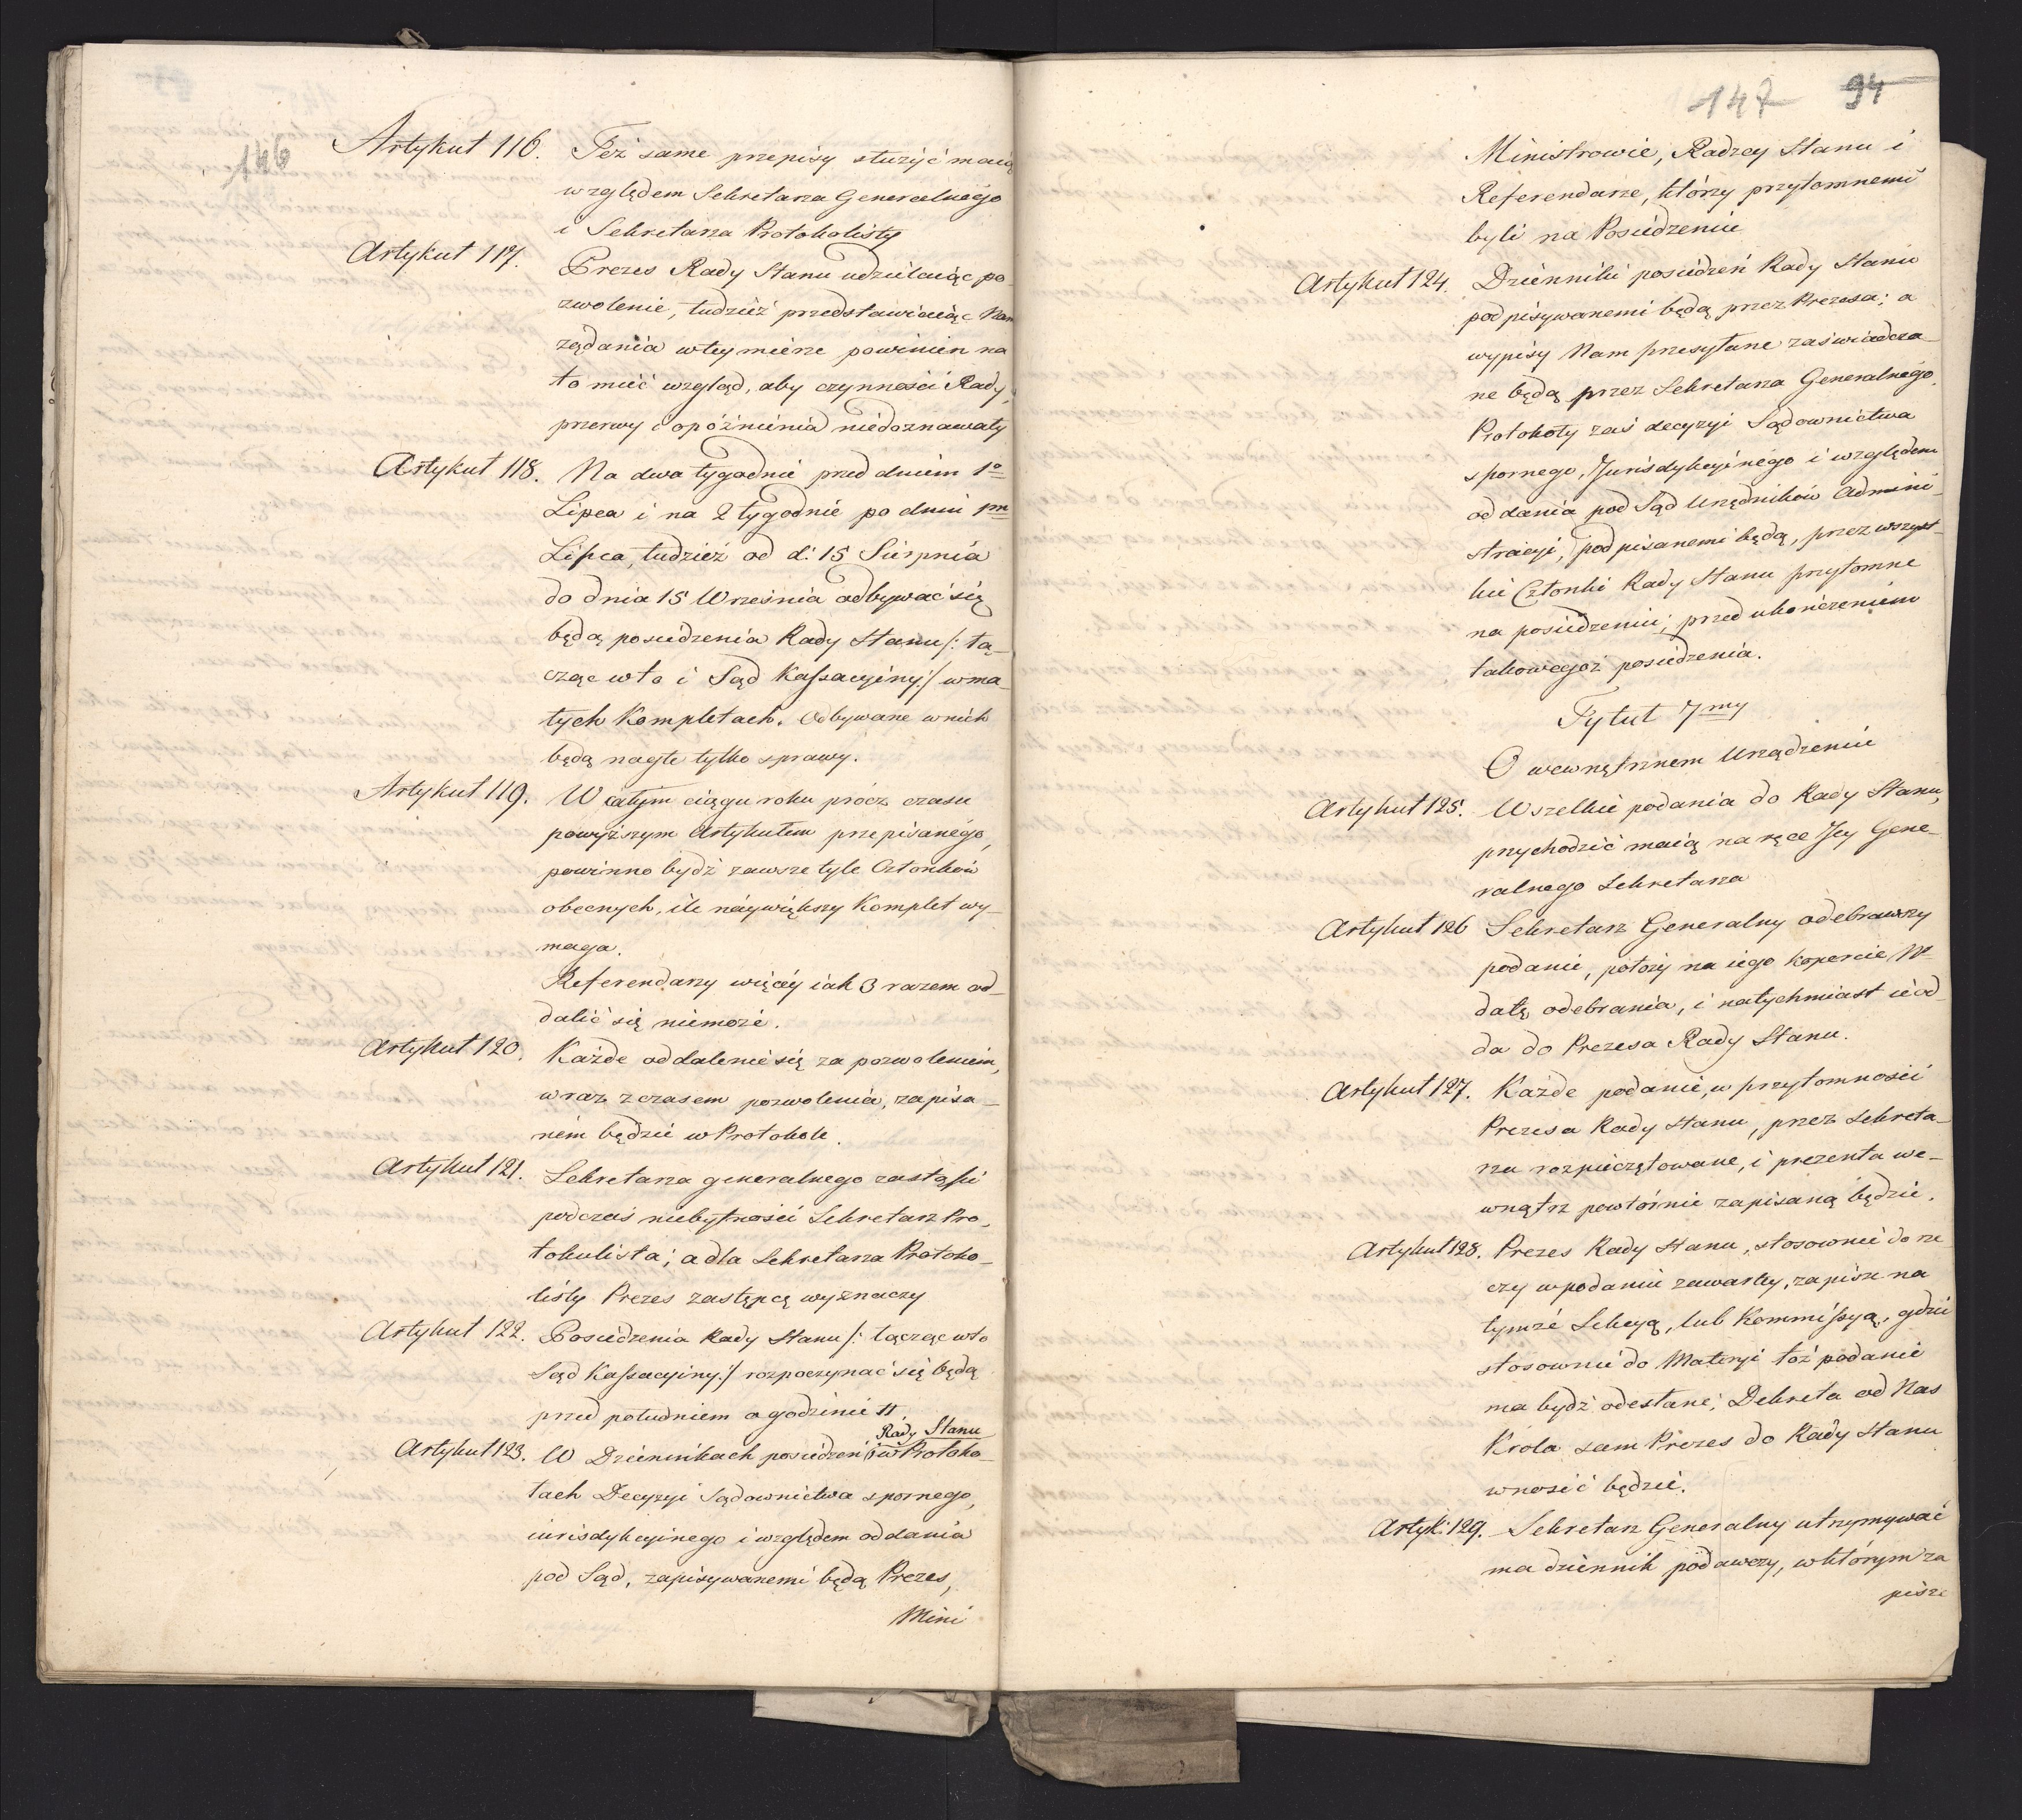 146
Artykuł 116. Też same przepisy służyć maią
względem Sekretarza Generalnego
i Sekretarza Protokolisty
Artykuł 117. Prezes Rady Stanu udzielaiąc po-
zwolenie, tudzież przedstawiaiąc Nam
żądania w tey mierze powinien na
to mieć wzgląd, aby czynności Rady
przerwy i opóźnienia niedoznawały
Artykuł 118. Na dwa tygodnie przed dniem 1o
Lipca i na 2 tygodnie po dniu 1m
Lipca, tudzież od d: 15 Sierpnia
do dnia 15 Września odbywać się
będą posiedzenia Rady Stanu /: łą-
cząc w to i Sąd Kassacyiny :/ w ma-
łych Kompletach. Odbywane w nich
będą nagłe tylko sprawy.
Artykuł 119. W całym ciągu roku prócz czasu
powyższym Artykułem przepisanego,
powinno bydź zawsze tyle Członków
obecnych, ile naywiększy Komplet wy-
maga.
Referendarzy więcéy iak 3 razem od-
dalić się niemoże.
Artykuł 120. Każde oddalenie się za pozwoleniem,
wraz z czasem pozwolenia, zapisa-
ném będzie w Protokole.
Artykuł 121. Sekretarza generalnego zastąpi
podczas niebytności Sekretarz Pro-
tokulista; a dla Sekretarza Protoko-
listy Prezes zastępcę wyznaczy
Artykuł 122. Posiedzenia Rady Stanu /: łącząc w to
Sąd Kassacyiny :/ rozpoczynać się będą
przed południem o godzinie 11.
Rady Stanu
Artykuł 123. W Dziennikach posiedzeń i w Protoko-
łach Decyzyi Sądownictwa spornego,
iurisdykcyinego i względem oddania
pod Sąd, zapisywanemi będą Prezes,
Mini
147 94
Ministrowie, Radzcy Stanu i
Referendarze, którzy przytomnemi
byli na Posiedzeniu
Artykuł 124. Dzienniki posiedzeń Rady Stanu
podpisywanemi będą przez Prezesa; a
wypisy Nam przesyłane zaświadcza-
ne będą przez Sekretarza Generalnego.
Protokoły zaś decyzyi Sądownictwa
spornego, Jurisdykcyinego i względem
oddania pod Sąd Urzędników Admini-
stracyi, podpisanemi będą, przez wszyst-
kie Członki Rady Stanu przytomne
na posiedzeniu; przed ukończeniem
takowegoż posiedzenia.
Tytuł 7my
O wewnętrznem Urządzeniu
Artykuł 125. Wszelkie podania do Rady Stanu,
przychodzić maią na ręce Jey Gene-
ralnego Sekretarza
Artykuł 126 Sekretarz Generalny odebrawszy
podanie, położy na iego kopercie No
datę odebrania, i natychmiast ie od-
da do Prezesa Rady Stanu.
Artykuł 127. Każde podanie, w przytomności
Prezesa Rady Stanu, przez Sekreta-
rza rozpieczętowane, i prezenta we-
wnątrz powtórnie zapisaną będzie.
Artykuł 128. Prezes Rady Stanu, stosownie do rze-
czy w podaniu zawartey, zapisze na
tymże Sekcyą, lub Kommissyą, gdzie
stosownie do Materyi toż podanie
ma bydź odesłane; Dekreta od Nas
Króla sam Prezes do Rady Stanu
wnosić będzie.
Artyk: 129. Sekretarz Generalny utrzymywać
ma dziennik podawczy, w którym za
pisze